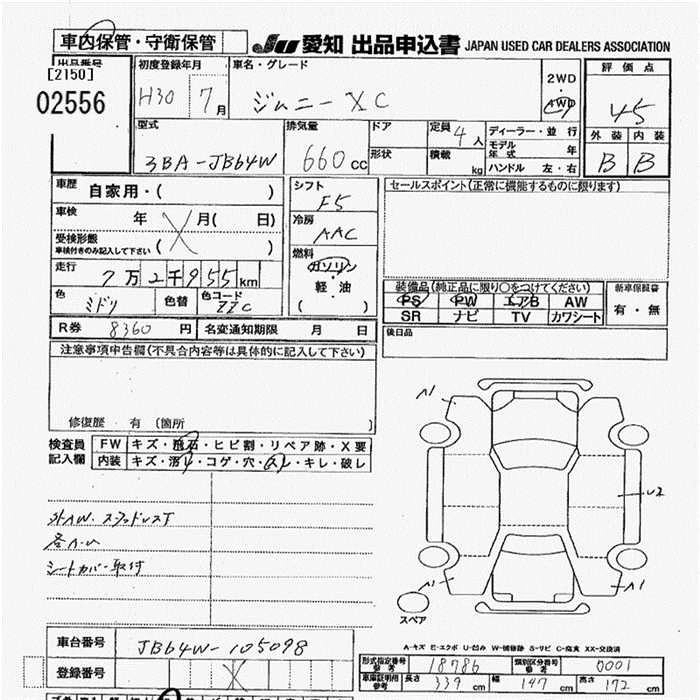 車内保管・守衛保管 JU 愛知 出品申込書 JAPAN USED CAR DEALERS ASSOCIATION
出品番号 初度登録年月 車名・グレード 評価点
[2150] 2WD
02556 H30 7月 ジムニー XC 4WD 4.5
型式 排気量 ドア 定員 4人 ディーラー・並行 外装 内装
モデル年式 年
3BA-JB64W 660cc 形状 積載 kg ハンドル 左・右 B B
車歴 自家用・( ) シフト F5 セールスポイント(正常に機能するものに限ります)
車検 年 X 月( 日) 冷房 AAC
受検形態
車検付きのみ記入して下さい ( )
走行 7万2千955km 燃料 ガソリン・軽・油 ( )
色 ミドリ 色替 色コード ZZC
装備品(純正品に限り○をつけてください) 新車保証書
PS PW エアB AW 有・無
SR ナビ TV カワシート
R券 8360円 名変通知期限 月 日 後日品
注意事項申告欄(不具合内容等は具体的に記入して下さい)
修復歴 有 (箇所 )
検査員記入欄 FW キズ・飛石・ヒビ割・リペア跡・X要
内装 キズ・汚レ・コゲ・穴・スレ・キレ・破レ
A1
U2
外AW・スタッドレス丁
各A・U
シートカバー取付
A1 A1
スペア
A-キズ E-エクボ U-凹み W-補修跡 S-サビ C-腐食 XX-交換済
車台番号 JB64W-105098
登録番号 X
形式指定番号 参考 18786 類別区分番号 参考 0001
車庫証明用 参考 長さ 339cm 幅 147cm 高さ 172cm